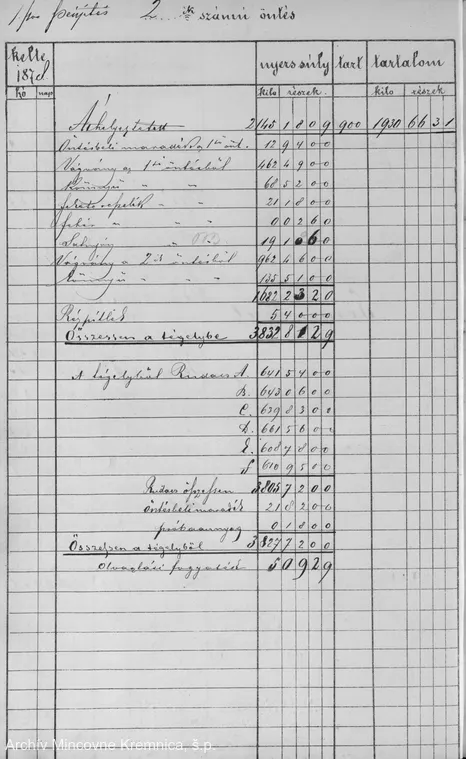 2 ik számú öntés
kelte 187 nyerssúly tart tartalom
hó nap kiló részek kiló részek
Áthelyeztetett 2145 1809 900 1930 6631
Öntésbeli maradék 1ső önt. 12 9400
Vágvány az 1ső öntésből 462 4900
Könnyű " " 68 5200
fekete " " 21 1800
fehér " " 0 0260
19 1660
Vágvány a 2ik öntésből 962 4600
Könnyű " " 135 5100
1682 2320
Rézpótlék 5 4000
Összesen a tégelybe 3832 8129
A tégelyből Rudacs A. 641 5400
B. 643 0600
C. 639 8300
D. 661 5600
E. 608 7800
F 610 9500
Rudacs összesen 3805 7200
öntésbeli maradék 21 8200
próbaanyag 0 1800
Összesen a tégelyből 3827 7200
Olvasztási fogyaték 5 0929
Archív Mincovne Kremnica, š.p.